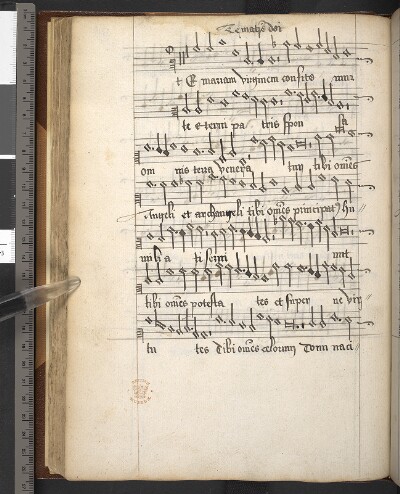 Te matrem dei
t E mariam virginem confite mur
te eterni pa tris spon sa
om nis terra venera tur tibi omēs
Angeli et archangeli tibi omēs principat9 hu
mili a ti serui unt
tibi omēs potesta tes et super ne vir
tu tes Tibi omēs celorum Domi naci